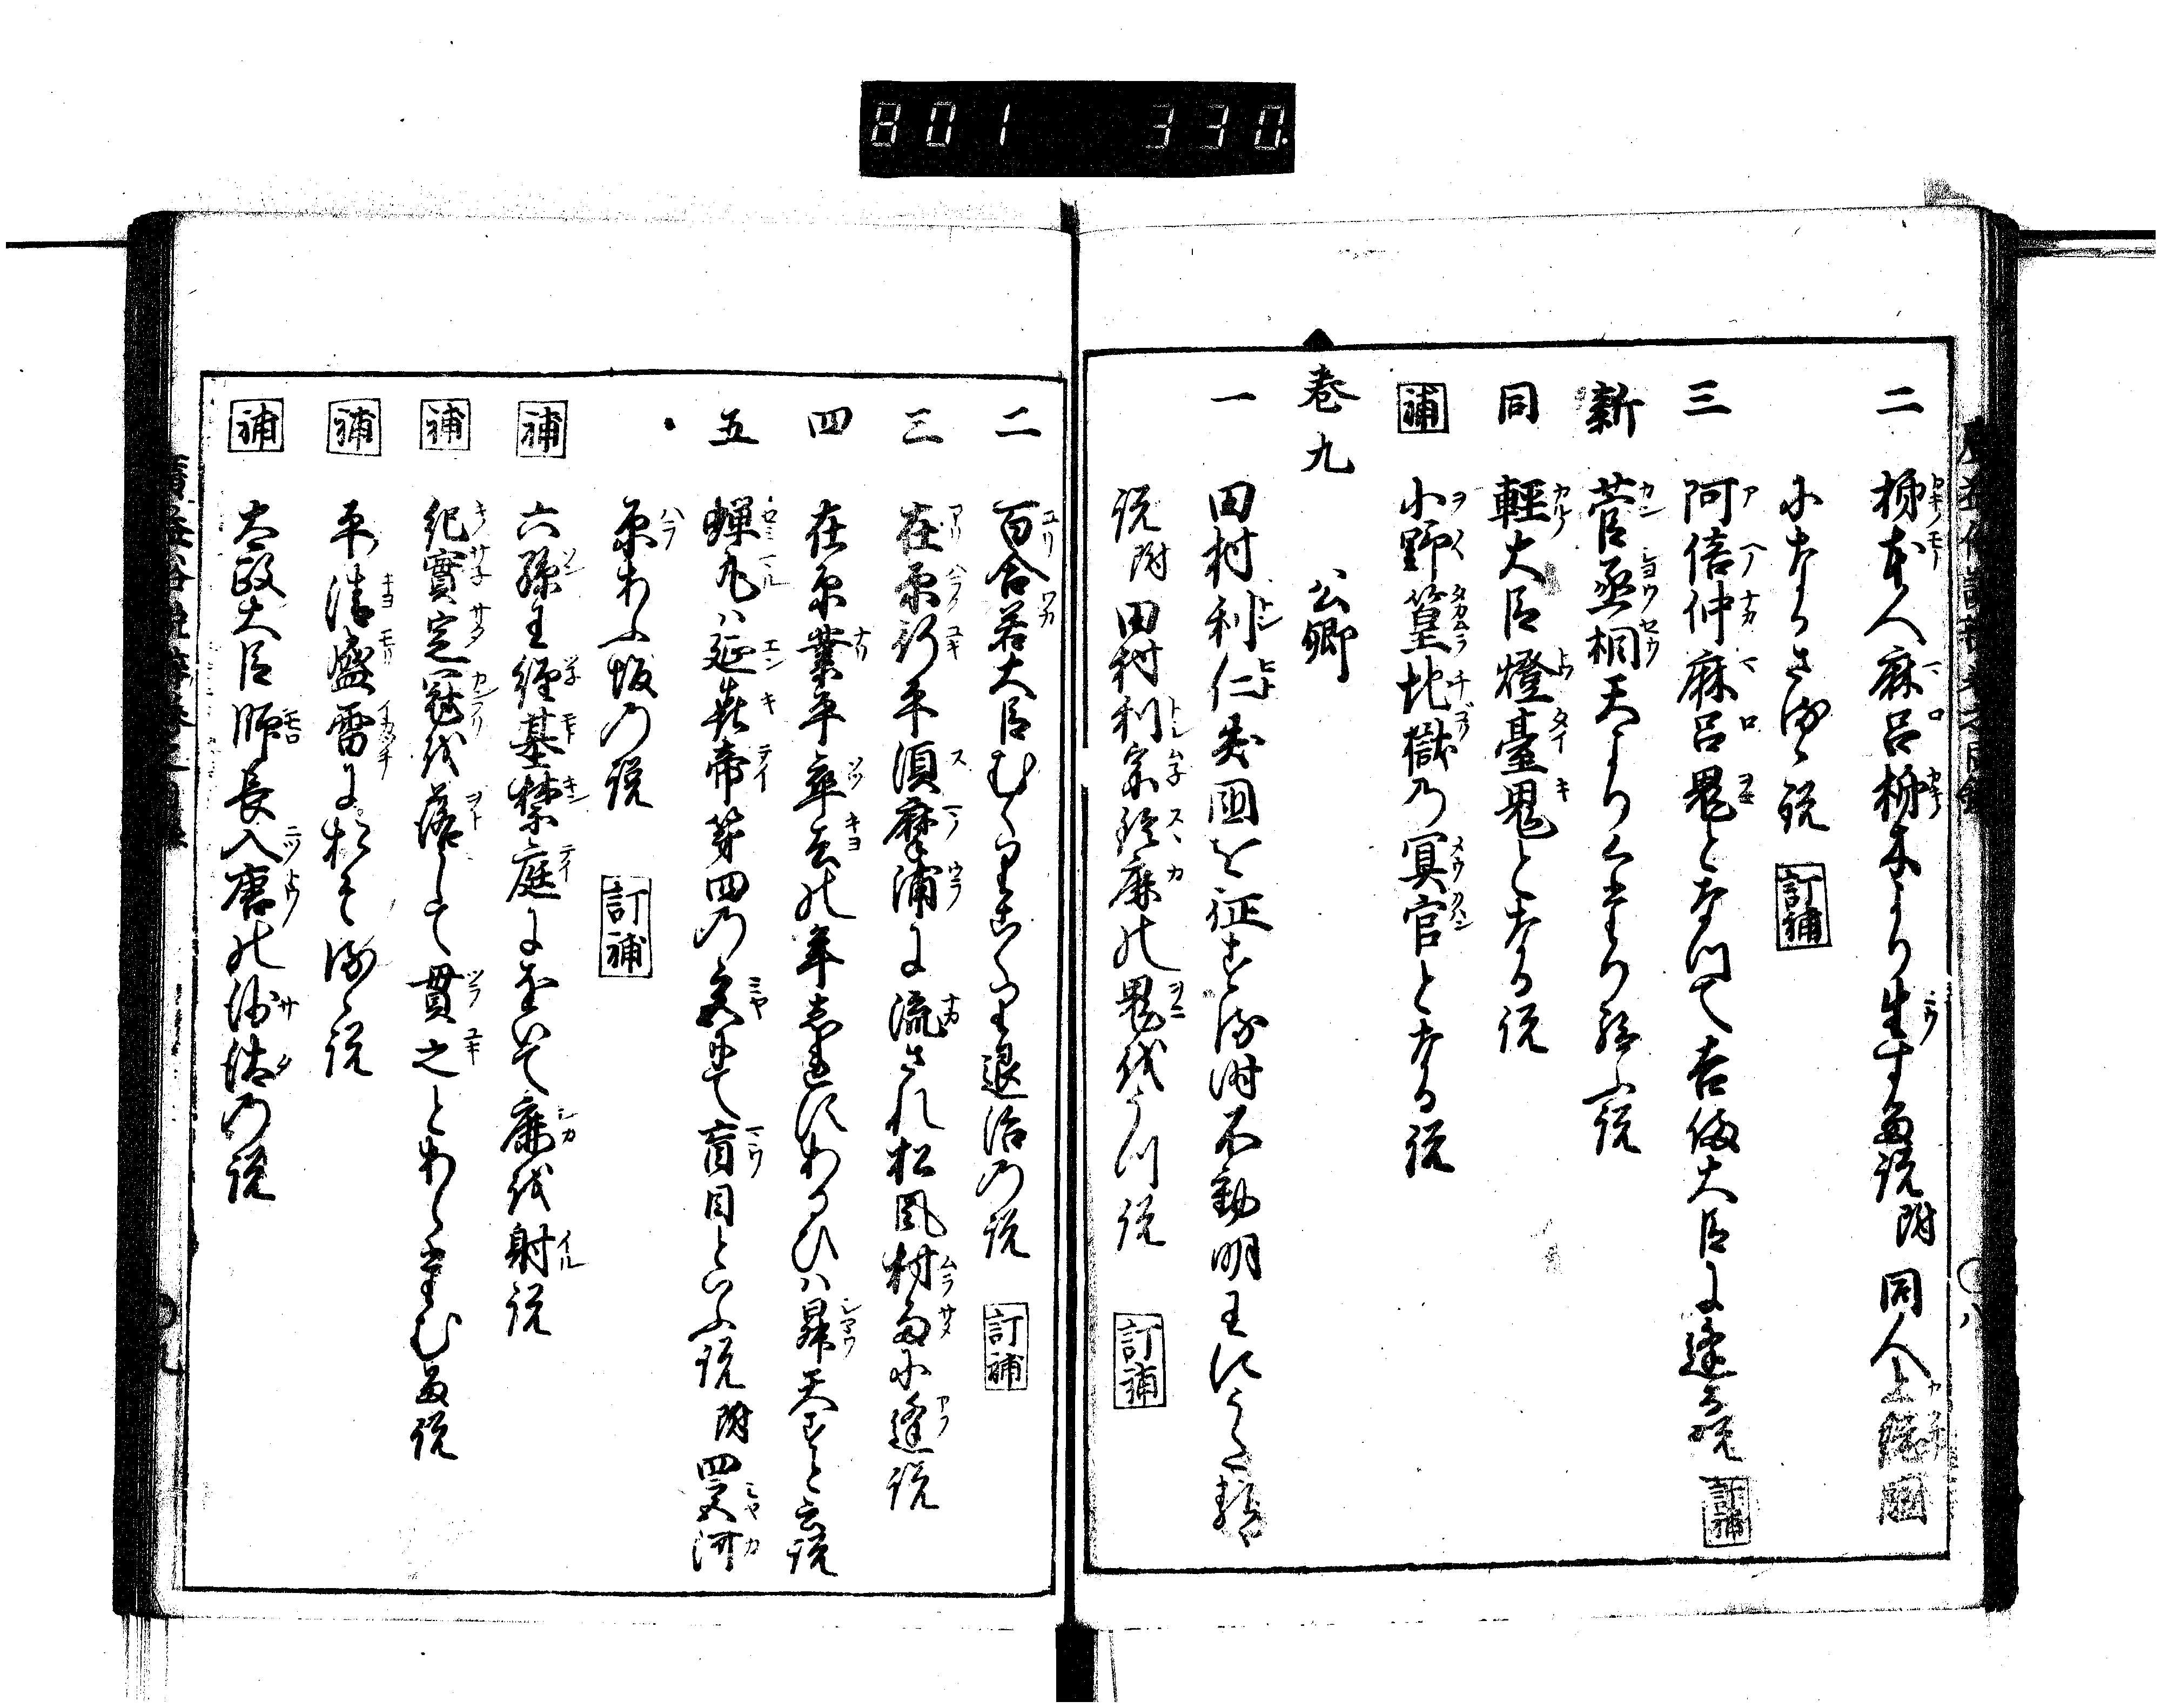 801 330.
二 柿本人麻呂柿木より生する説附同人上総国
になかさるゝ説 訂補
三 阿倍仲麻呂鬼となりて吉備大臣に逢ふ説 訂補
新 菅丞相天より くたり給ふ説
同 軽大臣燈臺鬼となる説
補 小野篁地獄の冥官となる説
巻九 公卿
一 田村利仁 国を征する時不動明王に
説附田村利宗鈴鹿の鬼をうつ説 訂補
二 百合若大臣むくりこくり退治の説 訂補
三 在原行平須磨浦に流され松風村雨に逢説
四 在原業平卒去の年 あるひは昇天すと云説
五 蝉丸ハ延喜帝第四の宮にて盲目といふ説附四宮河
原あふ坂の説 訂補
補 六孫王経基禁庭にをいて鹿を射説
補 紀實定冠を落して貫之とあらそむる説
補 平清盛雷に
説
補 太政大臣師長入唐の沙汰の説